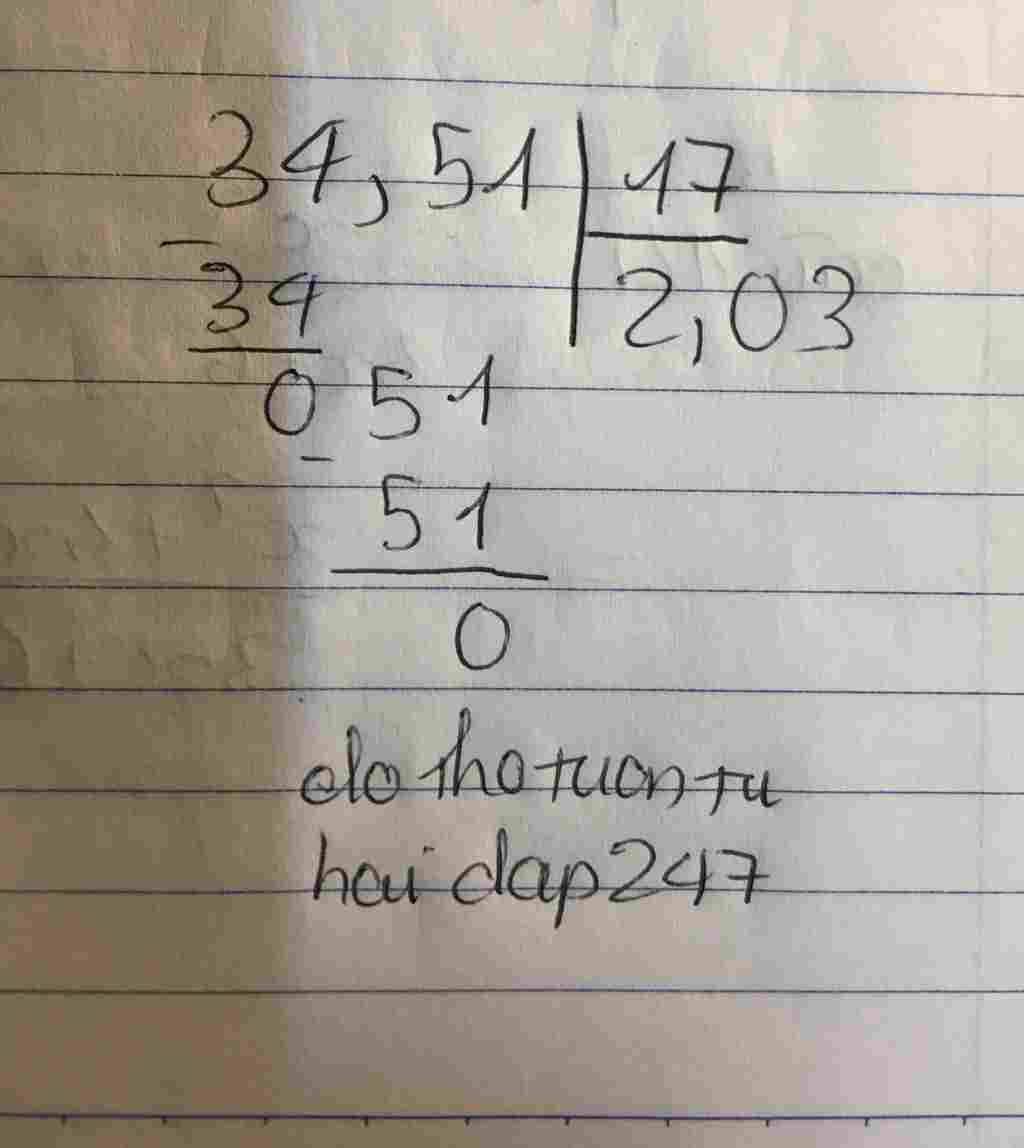 34,51 | 17
- 
34 2,03
0 51
-
51
0
do thotuantu
hoidap247